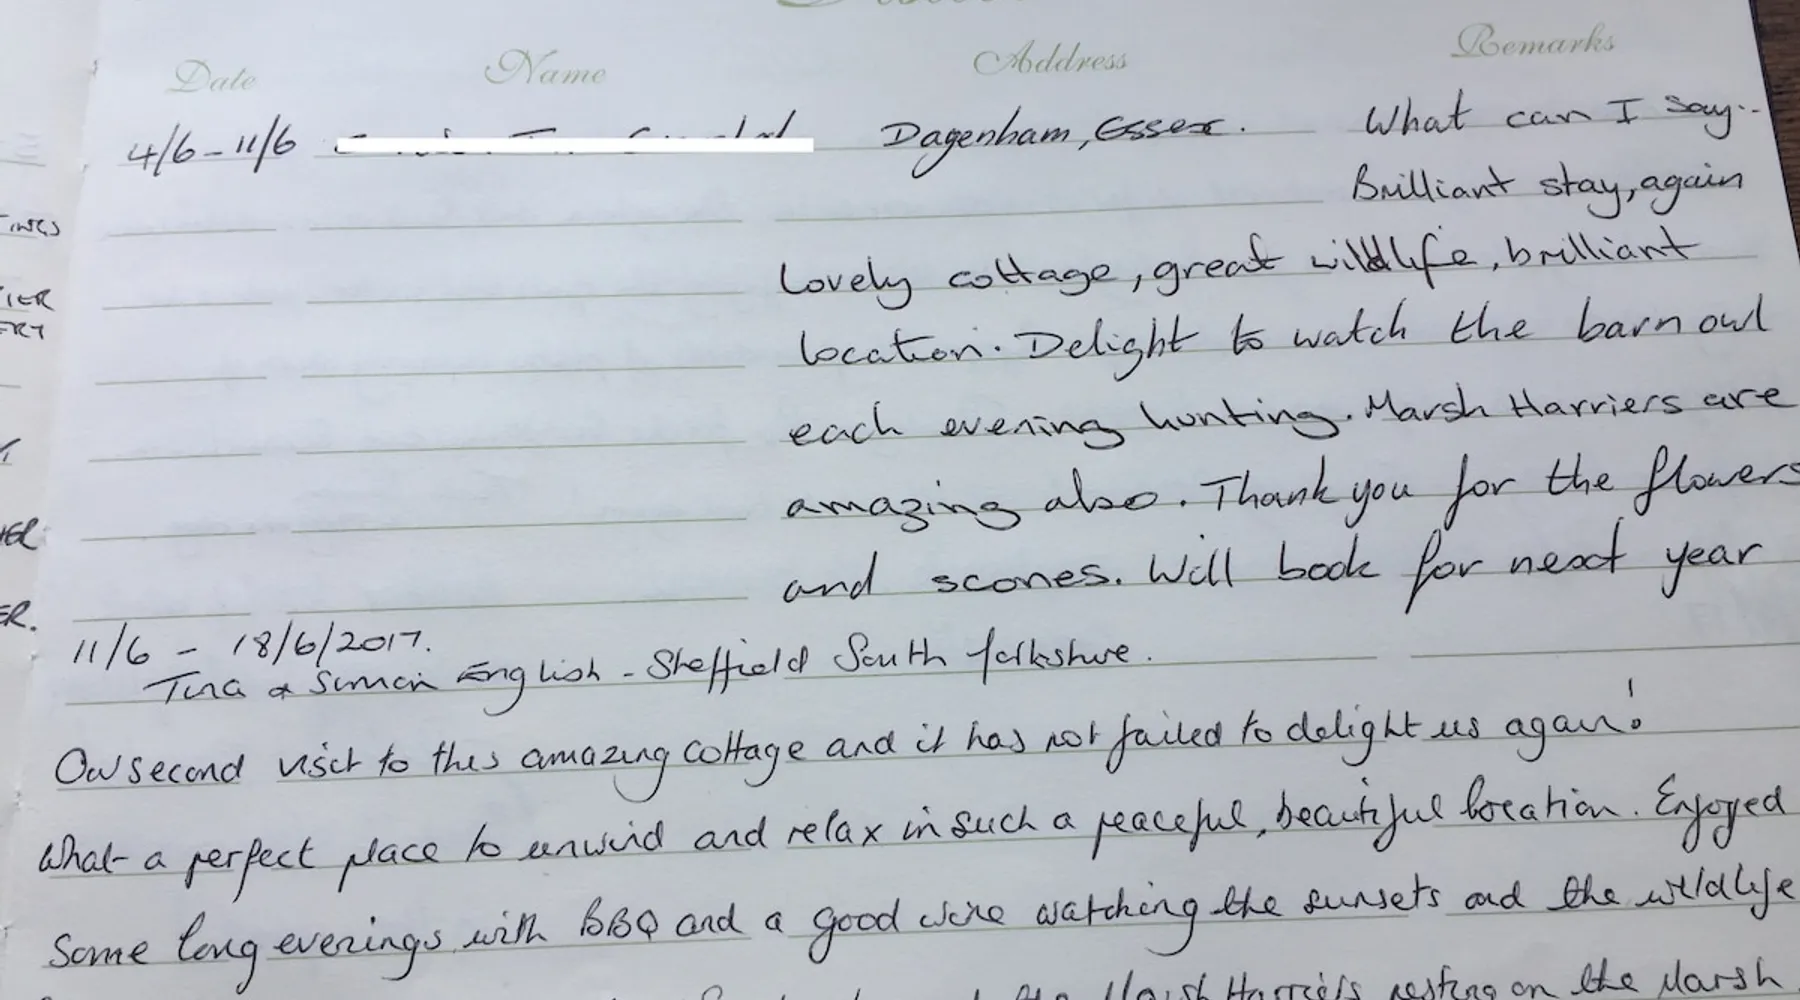 Date Name Address Remarks
4/6 - 11/6 Dagenham, Essex. What can I say..
Brilliant stay, again
lovely cottage, great wildlife, brilliant
location. Delight to watch the barn owl
each evening hunting. Marsh Harriers are
amazing also. Thank you for the flowers
and scones. Will book for next year
11/6 - 18/6/2017.
Tina & Simon English - Sheffield South Yorkshire.
Our second visit to this amazing cottage and it has not failed to delight us again!
What a perfect place to unwind and relax in such a peaceful, beautiful location. Enjoyed
Some long evenings with BBQ and a good wine watching the sunsets and the wildlife
the Marsh Harriers resting on the Marsh